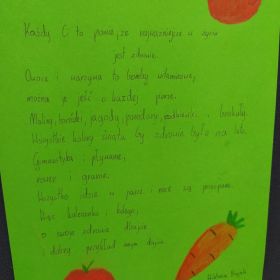 Każdy Ci to powie, że najważniejsze w życiu
jest zdrowie.
Owoce i warzywa to bomby witaminowe,
można je jeść o każdej porze.
Maliny, banany, jagody, pomidory, rzodkiewki i brokuły.
Wszystkie kolory świata by zdrowie było na lata.
Gimnastyka i pływanie,
rower i granie.
Wszystko idzie w parze i nie są przesądne.
Więc koleżanko i kolego,
o swoje zdrowie dbajcie
i dobry przykład innym dajcie.
Wiktoria